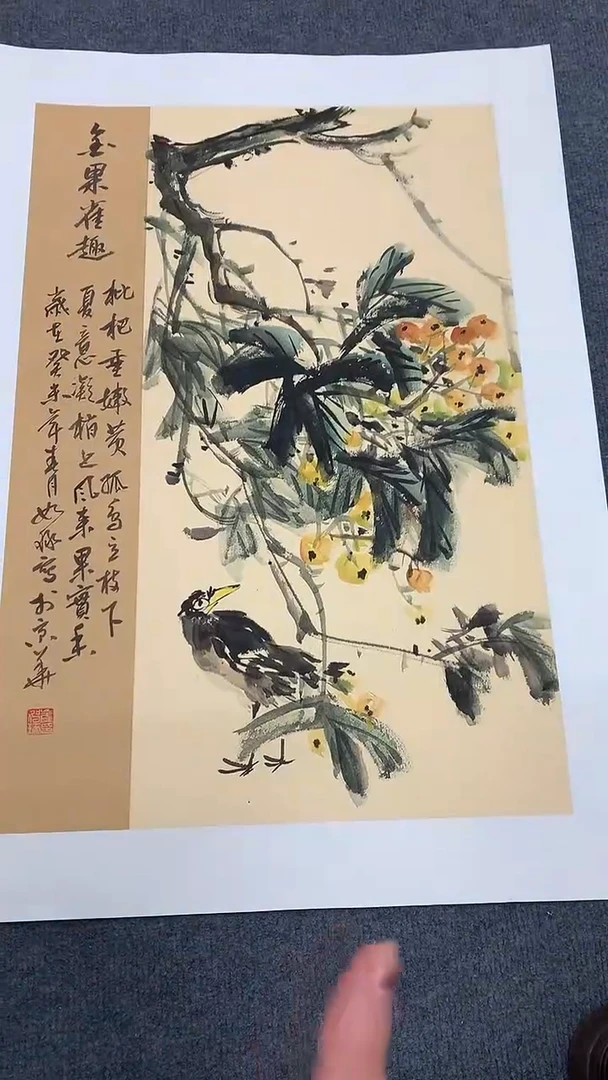 金果雀趣
枇杷垂嫩黄孤鸟立枝下
夏意凝梢上风来果實香
歲在癸未年春月如
寫於京華